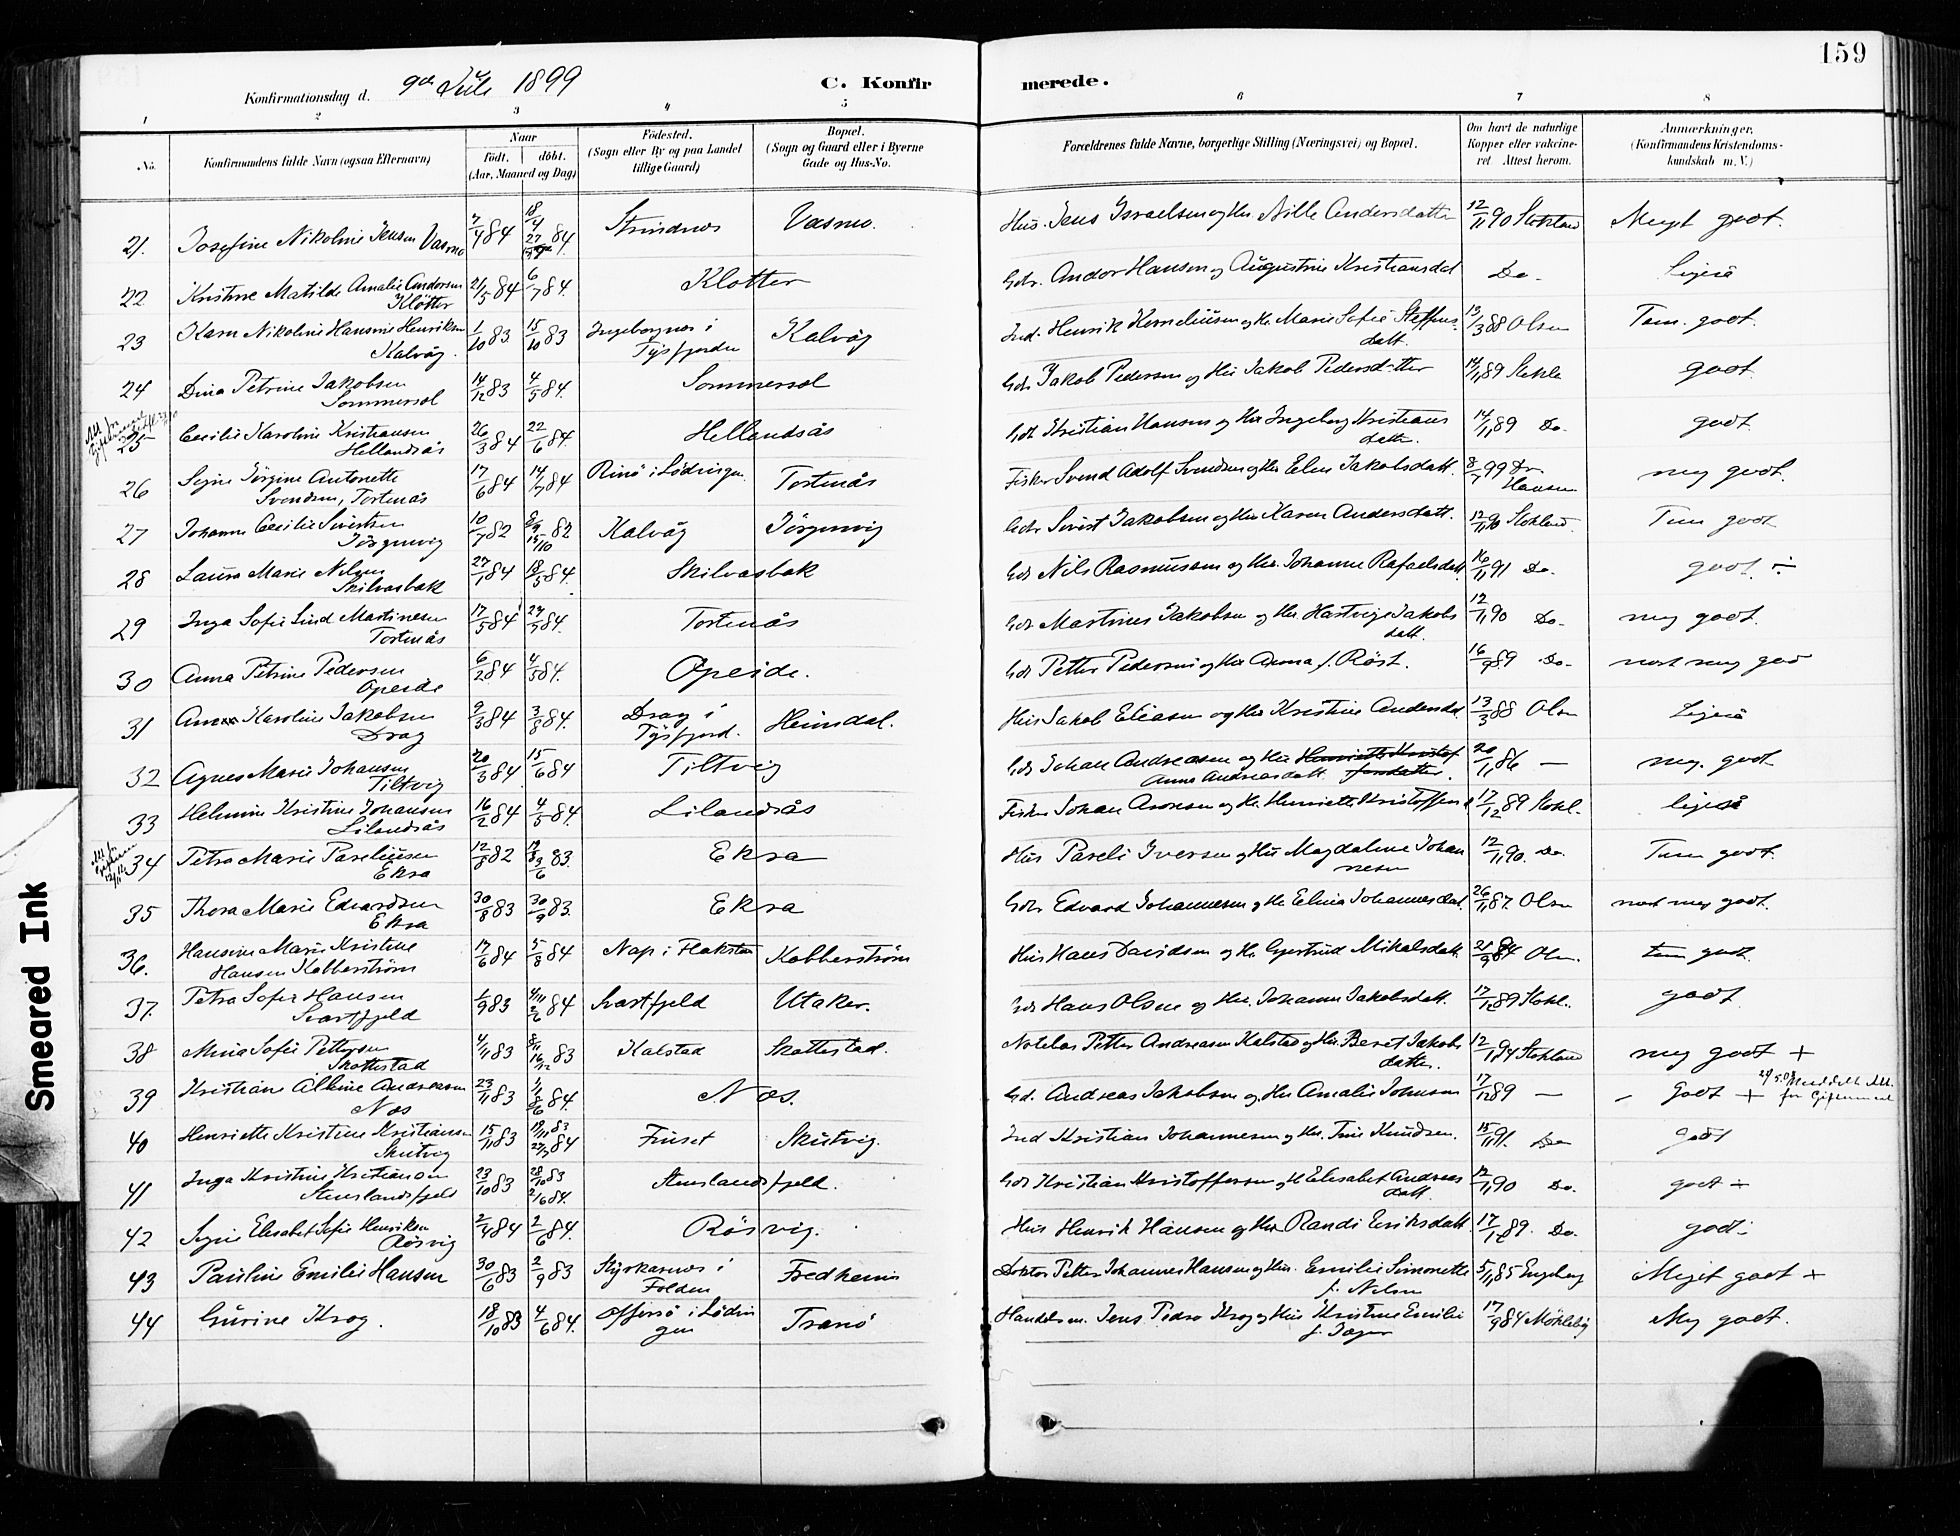 159
Konfirmationsdag d. 9de Juli 1899 C. Konfirmerede.
1 2 3 4 5 6 7 8
No. Konfirmandens fulde Navn (ogsaa Efternavn) Naar født. døbt. (Aar, Maaned og Dag) Fødested. (Sogn eller By og paa Landet tillige Gaard) Bopæl. (Sogn og Gaard eller i Byerne Gade og Hus-No. Forældrenes fulde Navne, borgerlige Stilling (Næringsvei) og Bopæl. Om havt de naturlige Kopper eller vakcineret Attest herom. Anmærkninger. (Konfirmandens Kristendomskundskab m. V.)
21. Josefine Nikoline Jensen Vasmo 7/4 84 18/4 84 Strindnes Vasmo. Hus. Jens Israelsen og Hu. Nille Andersdatter 12/11 90 Stokland Meget godt.
22 Kristine Matilde Amalie Andersen Kløtter 21/5 84 6/7 84. Kløtter Gdr. Andor Hansen og Augustine Kristiansdat Do. Ligeså
23 Karn Nikoline Hansine Henriksen Kalvåg. 1/10 83 15/10 83 Ingeborgnes i Tysfjorden Kalvåg Ind. Henrik Korneliussen og Hu. Marie Sofie Steffensdatt. 13/3 88 Olsen Tem. godt.
24 Dina Petrine Jakobsen Sommersel 14/12 83 4/5 84. Sommersel Gdr. Jakob Pedersen og Hu Jakob Pedersdatter 14/11 89 Stokla godt.
25 Cecilie Karoline Kristiansen Hellandsås 26/3 84 22/6 84. Hellandsås Gdr Kristian Hansen og Hu Ingeborg Kristiansdatter. 14/11 89 Do. godt
26 Signe Jørgine Antonette Svendsen, Tortenås 17/6 84 14/7 84 Rinø i Lødingen Tortenås Fisker Svend Adolf Svendsen og Hu Elen Jakobsdatt. 8/7 99 Dr. Hansen meg godt.
27 Johanna Cecilie Sivertsen Jørgenvig 10/7 82 15/10 82 Kalvåg Jørgenvig Gdr. Sivert Jakobsen og Hu Karen Andersdatt. 12/11 90 Stokland. Tem godt
28 Laura Marie Nilsen Skilvasbak 27/1 84 18/5 84. Skilvasbak Gdr Nils Rasmussen og Hu. Johanne Rafaelsdatt 16/11 91 Do. godt. ÷
29 Inga Sofie Lind Martinesen Tortenås 17/5 84 84. Tortenås Gdr Martines Jakobsen og Hu Hartvige Jakobsdatt. 12/11 90 Do. meg godt.
30 Anna Petrine Pedersen Opeide 6/2 84 4/5 84. Opeide. Gdr Petter Pedersen og Hu Anna f. Røst. 16/9 89 Do. næst meg god
31 Karoline Jakobsen Drag 9/3 84 3/8 84. Drag i Tysfjord. Heimdal. Hus Jakob Eliasen og Hu Kristine Andersdat. 13/3 88 Olsen Ligeså
32 Agnes Marie Johansen Tiltvig 20/3 84 15/6 84 Tiltvig Gdr Johan Andreassen og Hu Henriette Kristoffersdatter. Anne Andreasdatt. 20/11 86 — meg. godt
33 Helmine Kristine Johansen Lilandsås 16/2 84 4/5 84. Lilandsås Fisker Johan Aronsen og Hu. Henriette Kristoffersd 17/12 89 Stokl. ligeså
34 Petra Marie Pareliusen Eksa 12/8 82 83. Eksa Hus Pareli Iversen og Hu Magdalene Johannesen 12/11 90. Do. Tem godt.
35 Thora Marie Edvardsen Eksa 30/8 83 30/9 83. Eksa Gdr. Edvard Johannesen og Hu Elina Johannesdat. 26/11 87. Olsen næst meg godt.
36. Hansine Marie Kristine Hansen Kobberstrøm 17/6 84 5/8 84 Nap i Flakstad Kobberstrøm Hus Hans Davidsen og Hu. Gjertrud Mikalsdatt. 84 Olsn. tem godt.
37. Petra Sofie Hansen Svartfjeld 1/9 83 84 Svartfjeld Utaker. Gdr Hans Olsen og Hu. Johanna Jakobsdatt. 17/12 89 Stokl. godt
38 Mina Sofie Pettersen Skottestad 4/11 83 16/12 83 Kalstad Skottestad. Petter Andreasen Kalstad og Hu. Beret Jakobsdatter. Stokland meg godt +
39 Kristiane Albine Andreasen Nes 23/11 83 84. Nes. Gd. Andreas Jakobsen og Hu Amalie Johnsen 17/12 89 — Godt + Meddelt Att. for Giftermaal
40 Henriette Kristine Kristiansen Skutvig 15/11 83 19/11 83 84 Finset Skutvig. Ind Kristian Johannesen og Hu. Trine Knudsen. 15/11 91. Do godt
41 Inga Kristine Kristiansen Stenslandsfjeld 23/10 83 28/10 83 2/6 84. Stenslandsfjeld. Gdr Kristian Kristoffersen og H Elisabet Andreasdatt. 12/11 90 Do. godt ÷
42 Signe Elisabet Sofie Henriksen Røsvig 2/4 84 2/6 84. Røsvig. Hus Henrik Hansen og Hu Randi Eriksdatt. 17/12 89. Do. godt
43 Pauline Emilie Hansen 30/6 83 2/9 83 Styrkesnes i Folden Fredheim Doktor Petter Johannes Hansen og Hu. Emilie Simonette f. Nelsen 5/11 85 Engeborg Meget godt +
44 Gurine Krog. 18/10 83 4/6 84. Offersø i Lødingen Tranø Handelsm. Jens Pedro Krog og Hu Kristine Emilie f. Jæger 17/9 84 Møklebÿ Meg godt.
Smeared Ink